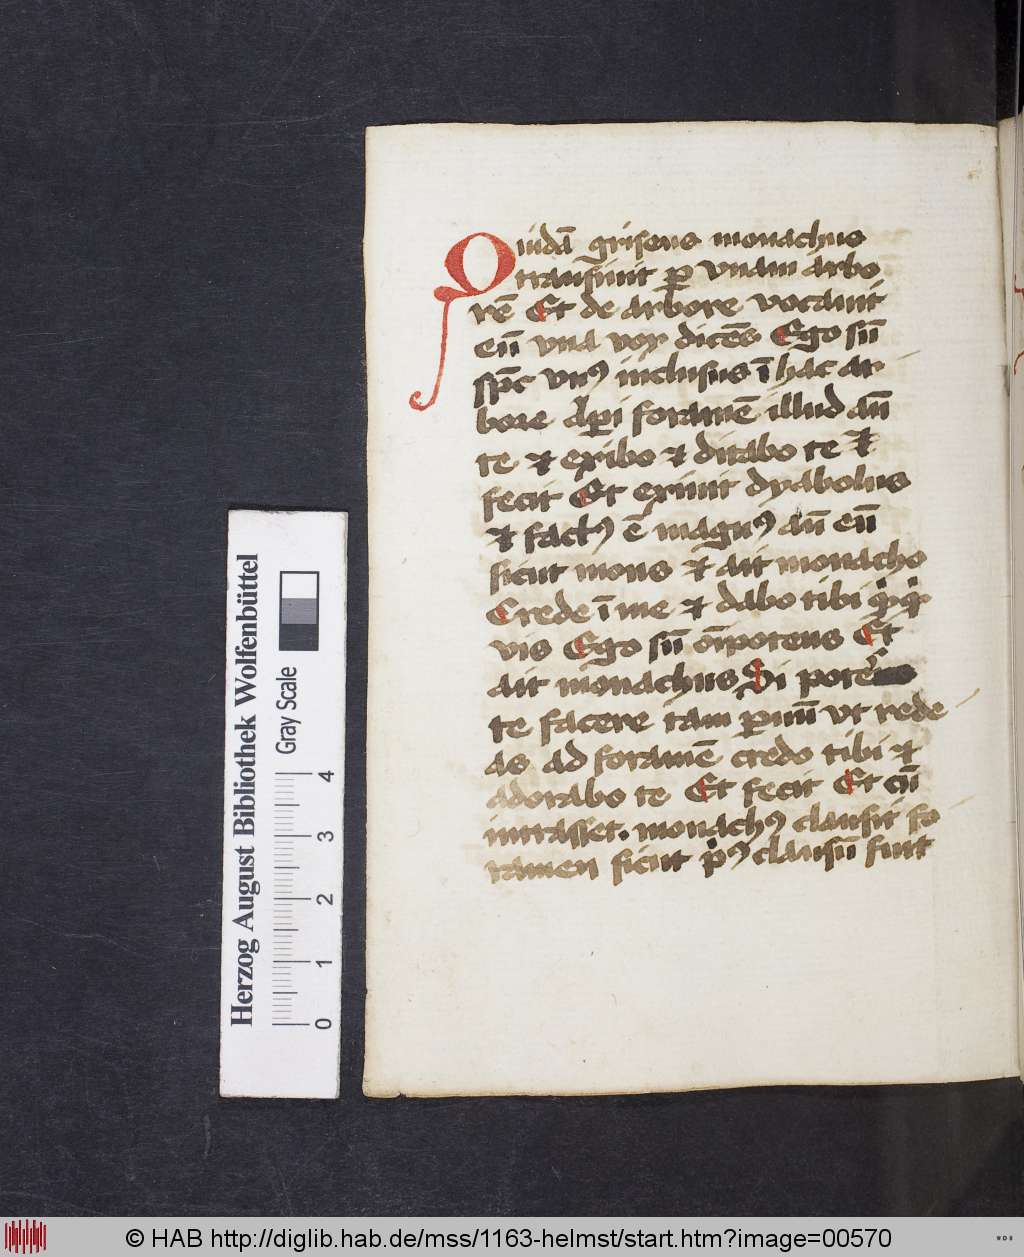 Quidā griseus monachus
transiuit ꝑ vnam arbo
rē Et de arbore vocauit
eū vna vox dicēs Ego sū
sp̄c vnꝰ inclusus ī hac ar
bore Aꝑi foramē illud aū
te ⁊ exibo ⁊ ditabo te ⁊
fecit Et exiuit dyabolus
⁊ factꝰ ē magnꝰ aū eū
sicut mons ⁊ ait monacho
Crede ī me ⁊ dabo tibi
vis Ego sū oīpotens Et
ait monachus Si potē
te facere tam ꝑuū vt rede
as ad foramē credo tibi ⁊
adorabo te Et fecit Et cū
intrasset. monachꝰ clausit fo
ramen sicut pͥꝰ clausū fuit
Herzog August Bibliothek Wolfenbüttel
Gray Scale
0 1 2 3 4
© HAB http://diglib.hab.de/mss/1163-helmst/start.htm?image=00570